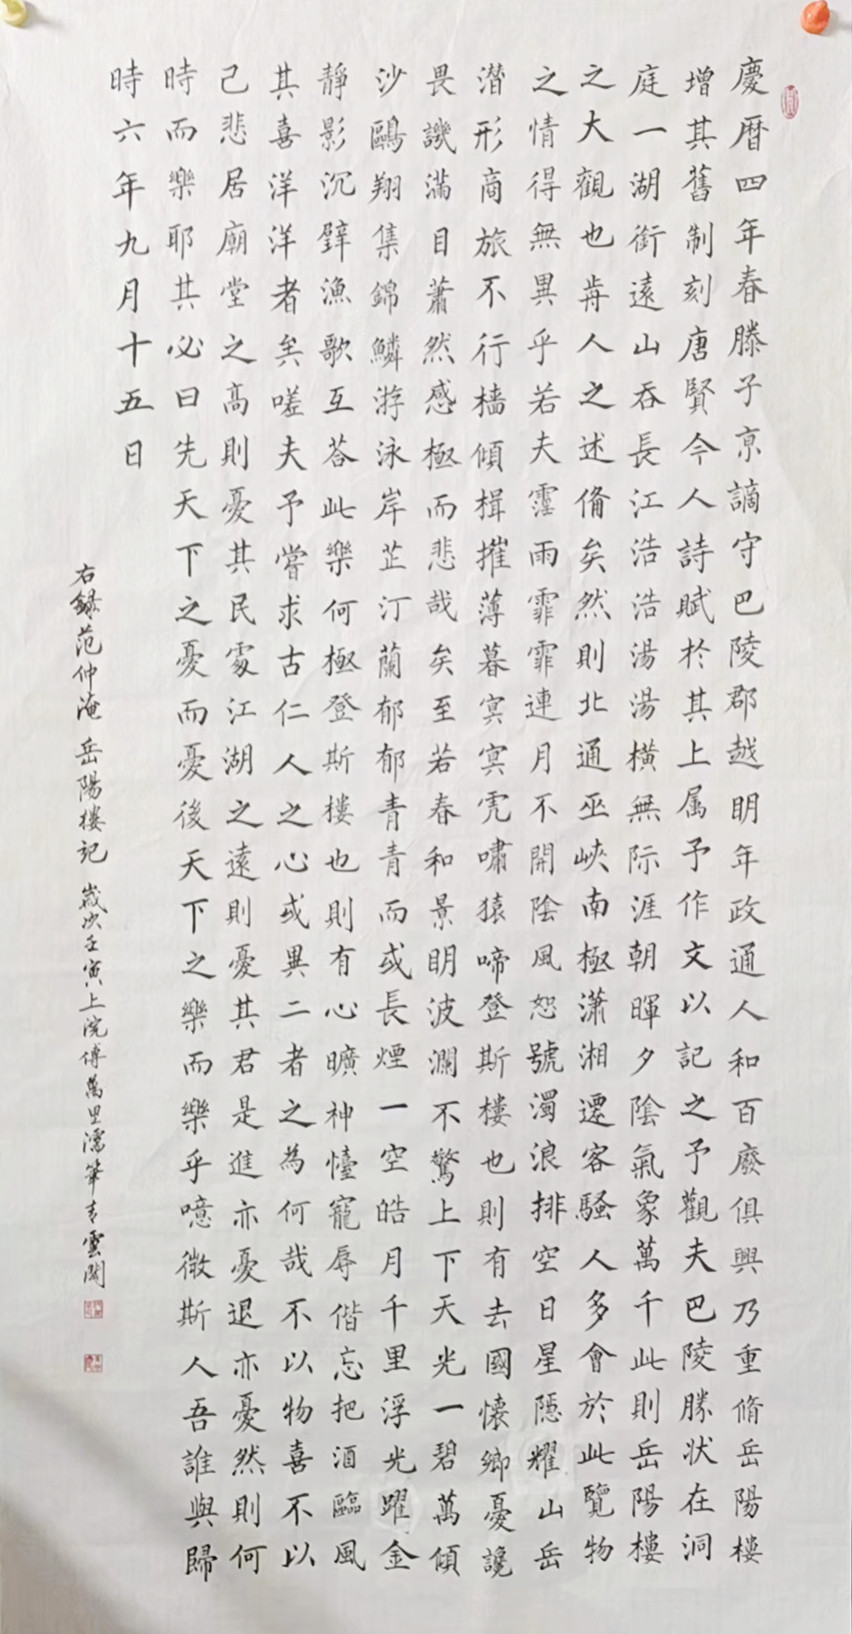 慶曆四年春滕子京謫守巴陵郡越明年政通人和百廢俱興乃重脩岳陽樓
增其舊制刻唐賢今人詩賦於其上属予作文以記之予觀夫巴陵勝状在洞
庭一湖銜遠山吞長江浩浩湯湯橫無際涯朝暉夕陰氣象萬千此則岳陽樓
之大觀也歬人之述俻矣然則北通巫峽南極潇湘遷客騷人多會於此覽物
之情得無異乎若夫霪雨霏霏連月不開陰風怒號濁浪排空日星隱耀山岳
潛形商旅不行檣傾楫摧薄暮冥冥虎嘯猿啼登斯樓也則有去國懷鄉憂讒
畏譏滿目蕭然感極而悲哉矣至若春和景明波澜不驚上下天光一碧萬傾
沙鷗翔集錦鱗游泳岸芷汀蘭郁郁青青而或長煙一空皓月千里浮光躍金
靜影沉璧漁歌互荅此樂何極登斯樓也則有心曠神怡寵辱偕忘把酒臨風
其喜洋洋者矣嗟夫予嘗求古仁人之心或異二者之為何哉不以物喜不以
己悲居廟堂之高則憂其民處江湖之遠則憂其君是進亦憂退亦憂然則何
時而樂耶其必曰先天下之憂而憂後天下之樂而樂乎噫微斯人吾誰與歸
時六年九月十五日
右錄范仲淹岳陽樓記歲次壬寅上浣傅萬里濡筆青雲閣